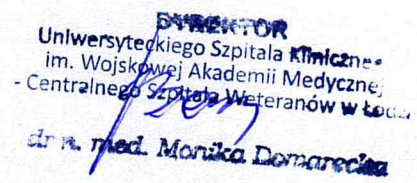 DYREKTOR
Uniwersyteckiego Szpitala Kliniczne
im. Wojskowej Akademii Medycznej
- Centralnego Szpitala Weteranów w Łodzi
dr n. med. Monika Domarecka